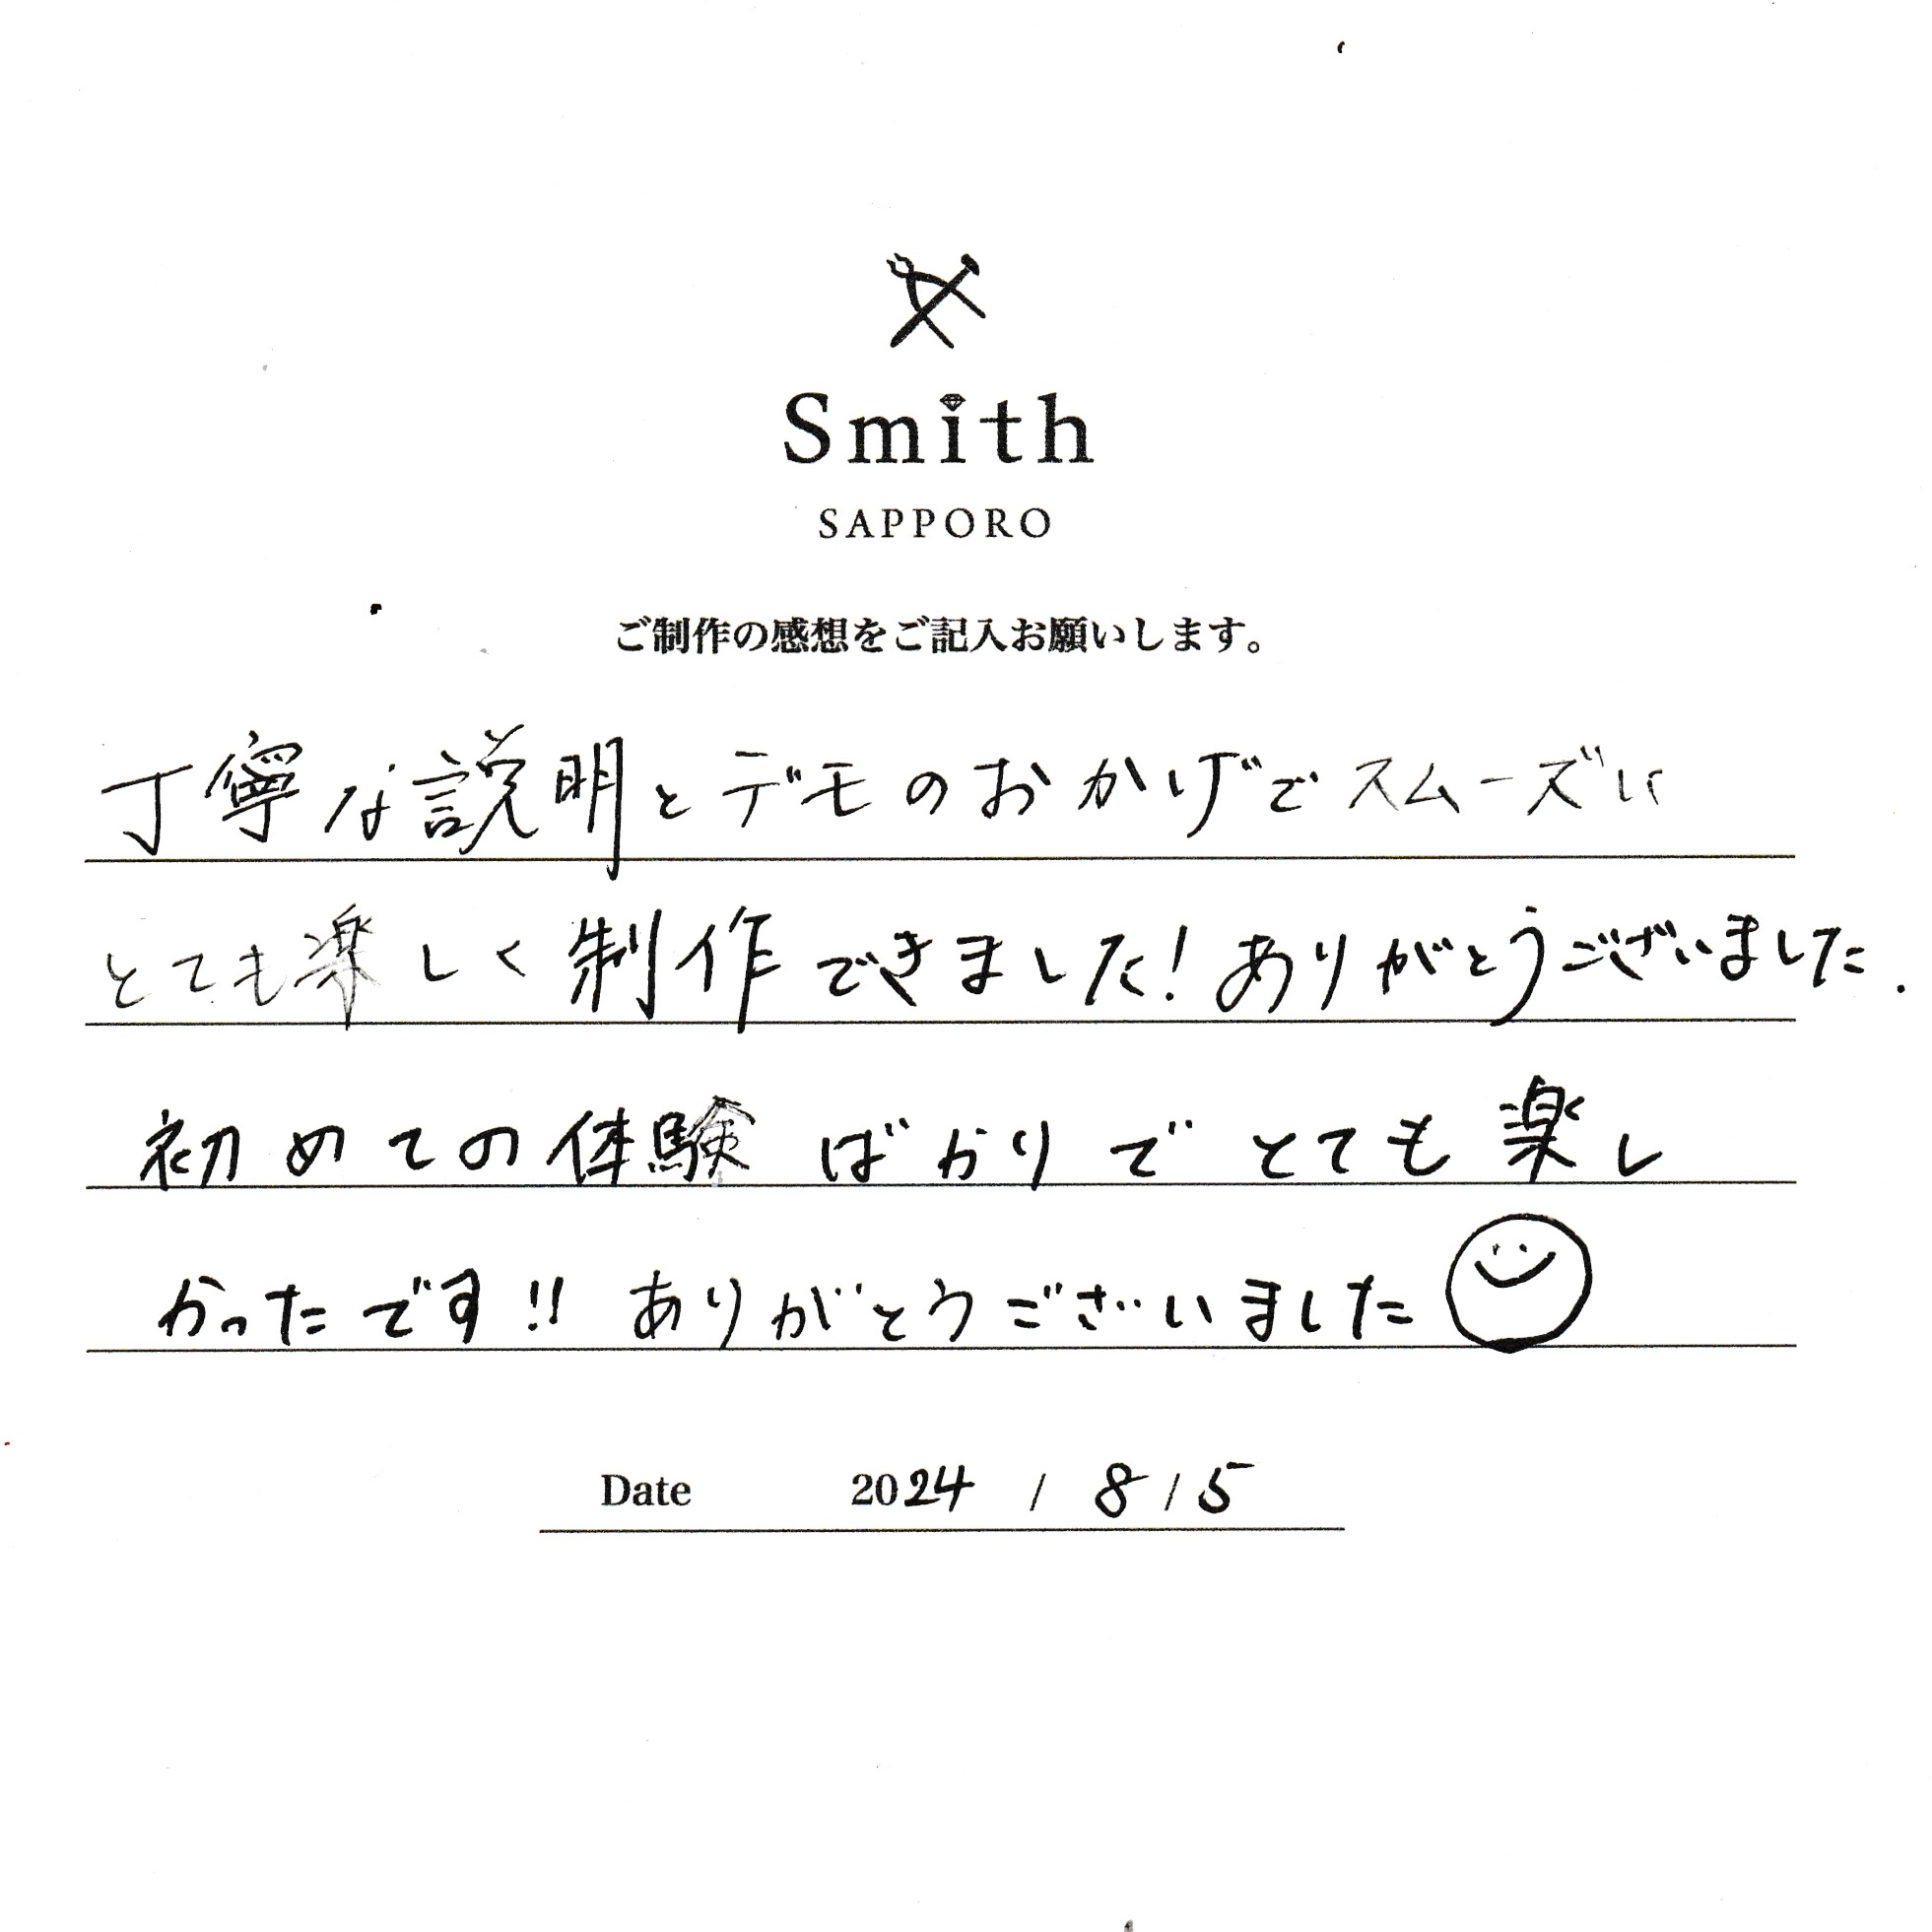 Smith
SAPPORO
ご制作の感想をご記入お願いします。
丁寧な説明とデモのおかげでスムーズに
とても楽しく制作できました!ありがとうございました.
初めての体験ばかりでとても楽し
かったです!! ありがとうございました
Date 2024 / 8 / 5